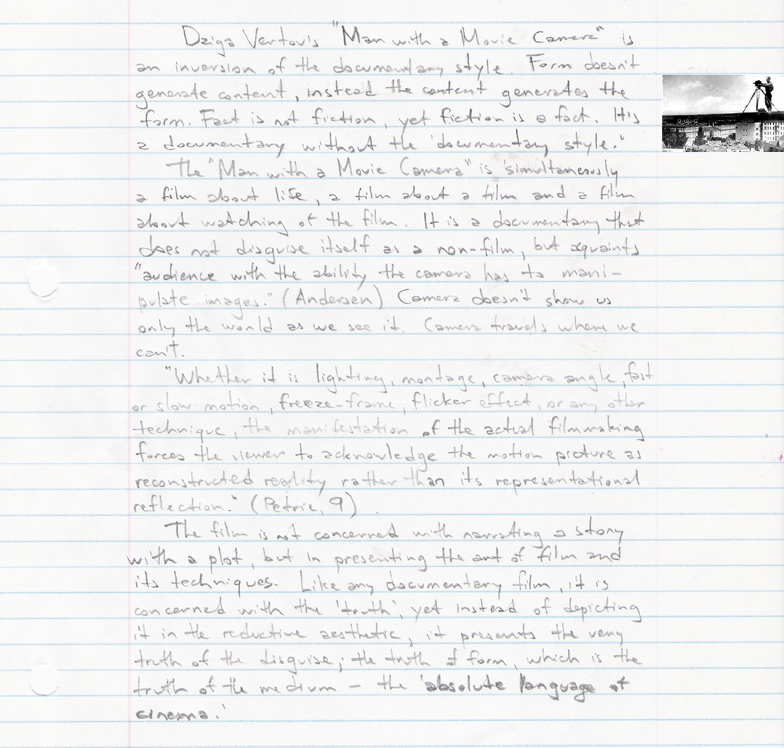 Dziga Vertov's "Man with a Movie Camera" is
an inversion of the documentary style. Form doesn't
generate content, instead the content generates the
form. Fact is not fiction, yet fiction is a fact. It's
a documentary without the 'documentary style.'
The "Man with a Movie Camera" is simultaneously
a film about life, a film about a film and a film
about watching of the film. It is a documentary that
does not disguise itself as a non-film, but aquaints
"audience with the ability the camera has to mani-
pulate images." (Andersen) Camera doesn't show us
only the world as we see it. Camera travels where we
can't.
"Whether it is lighting, montage, camera angle, fast
or slow motion, freeze-frame, flicker effect, or any other
technique, the manifestation of the actual filmmaking
forces the viewer to acknowledge the motion picture as
reconstructed reality rather than its representational
reflection." (Petric, 9)
The film is not concerned with narrating a story
with a plot, but in presenting the art of film and
its techniques. Like any documentary film, it is
concerned with the 'truth', yet instead of depicting
it in the reductive aesthetic, it presents the very
truth of the disguise; the truth of form, which is the
truth of the medium – the 'absolute language of
cinema.'